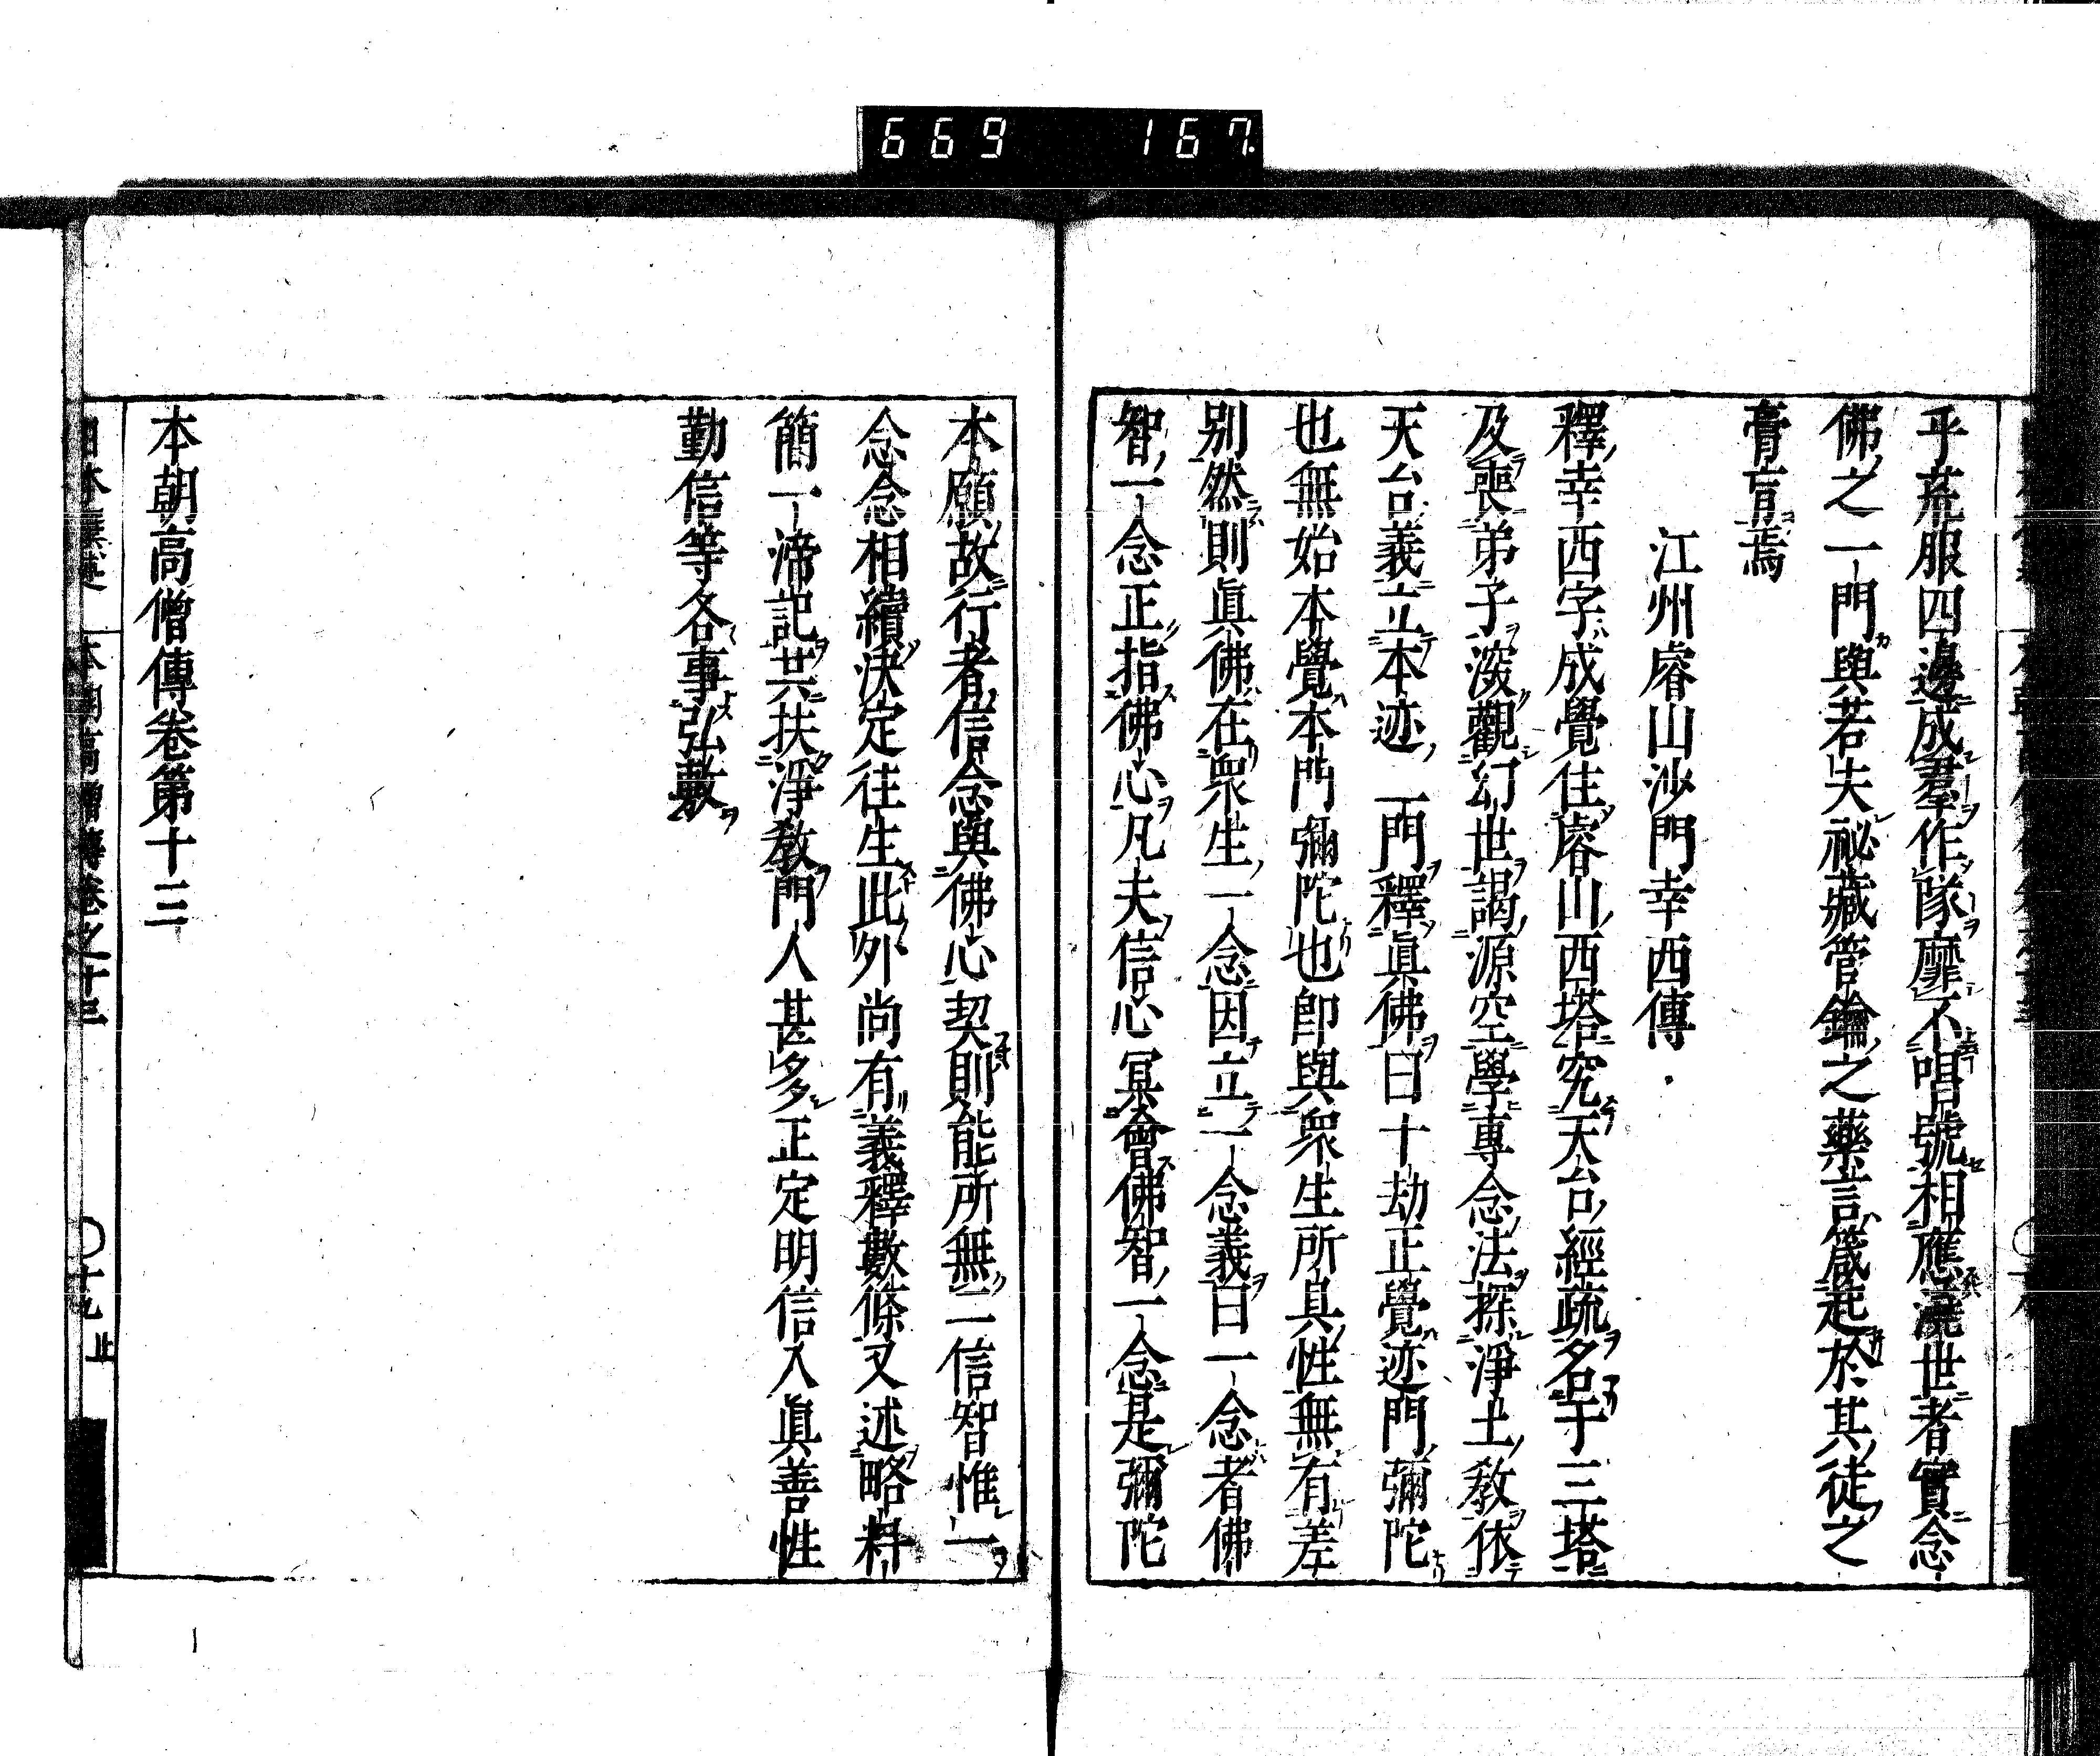 669 167
乎荒服四邊成羣作隊靡不唱號相應澆世者實念
佛之一門與若夫祕藏管鑰之藥言箴起於其徒之
膏肓焉
江州睿山沙門幸西傳
釋幸西字成覺住睿山西塔究天台經疏名于三塔
及喪弟子深觀幻世謁源空學專念法探淨土教依
天台義立本迹二門釋眞佛曰十劫正覺迹門彌陀
也無始本覺本門彌陀也卽與衆生所具性無有差
別然則眞佛在衆生一念因立一念義曰一念者佛
智一念正指佛心凡夫信心冥會佛智一念是彌陀
本願故行者信念與佛心契則能所無二信智惟一
念念相續決定往生此外尚有義釋數條又述略料
簡一渧記共扶淨教門人甚多正定明信入眞善性
勤信等各事弘敷
本朝高僧傳卷第十三
本朝高僧傳卷之十三
十九
止